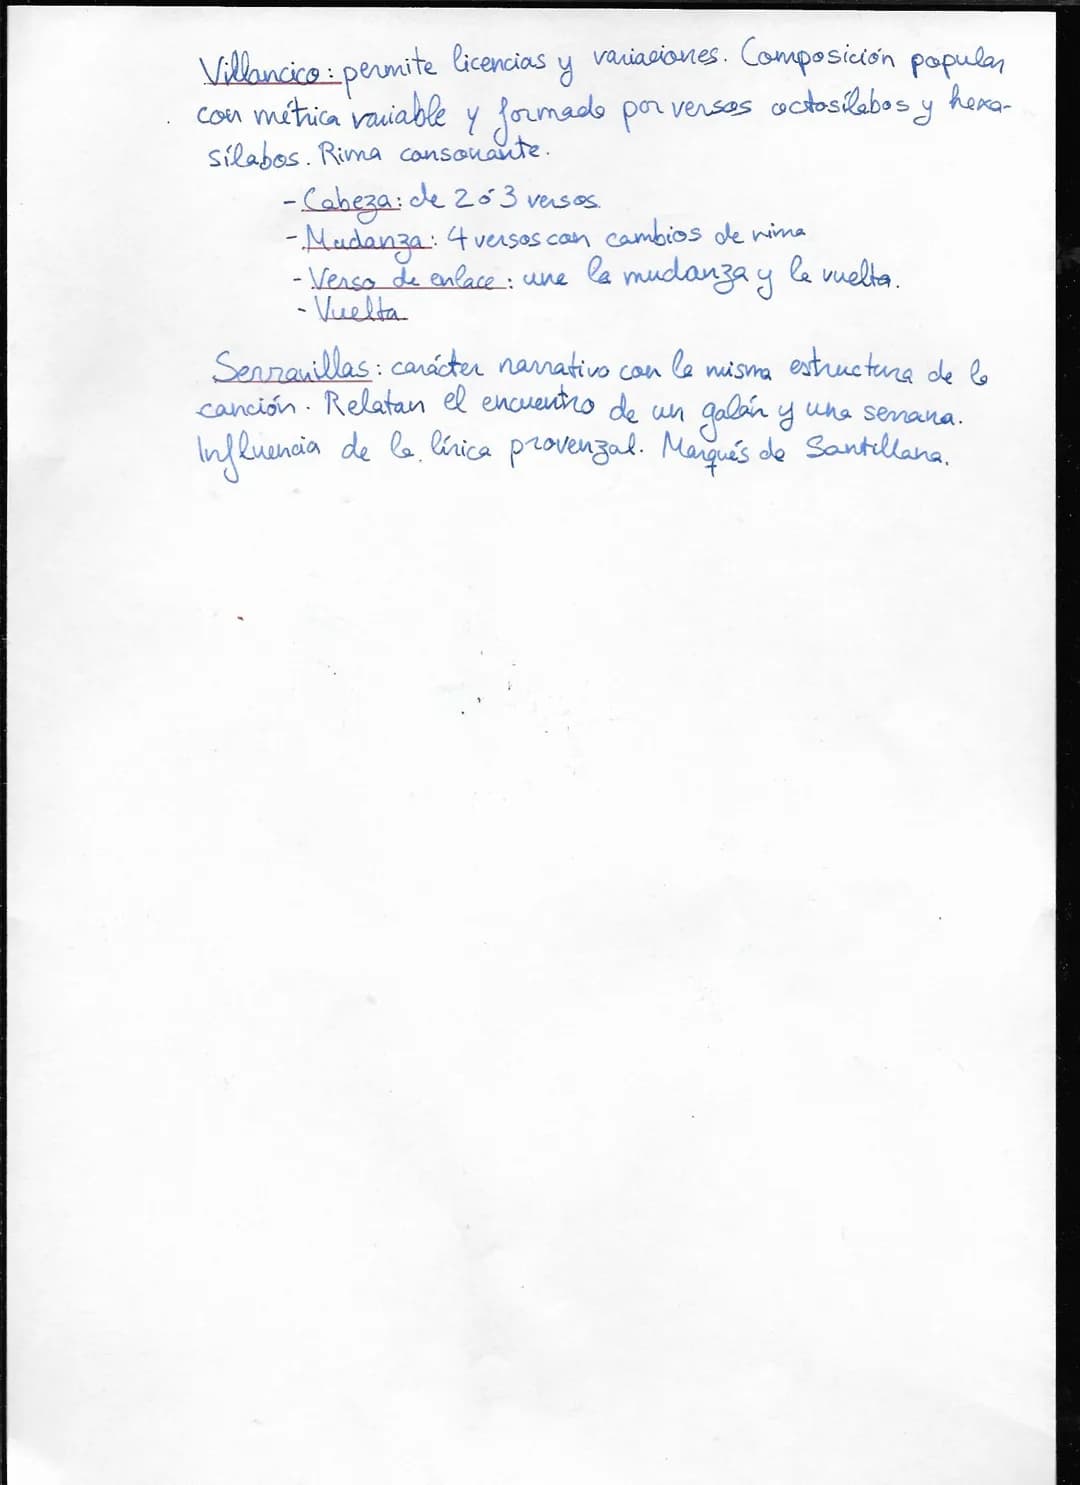 Villancico: permite licencias y variaciones. Composición popular
con métrica variable y formado por versos octosílabos y hexa-
sílabos. Rima consonante.
- Cabeza: de 2 ó 3 versos.
- Mudanza: 4 versos con cambios de rima
- Verso de enlace: une la mudanza y la vuelta.
- Vuelta
Serranillas: carácter narrativo con la misma estructura de la
canción. Relatan el encuentro de un galán y una serrana.
Influencia de la lírica provenzal. Marqués de Santillana.